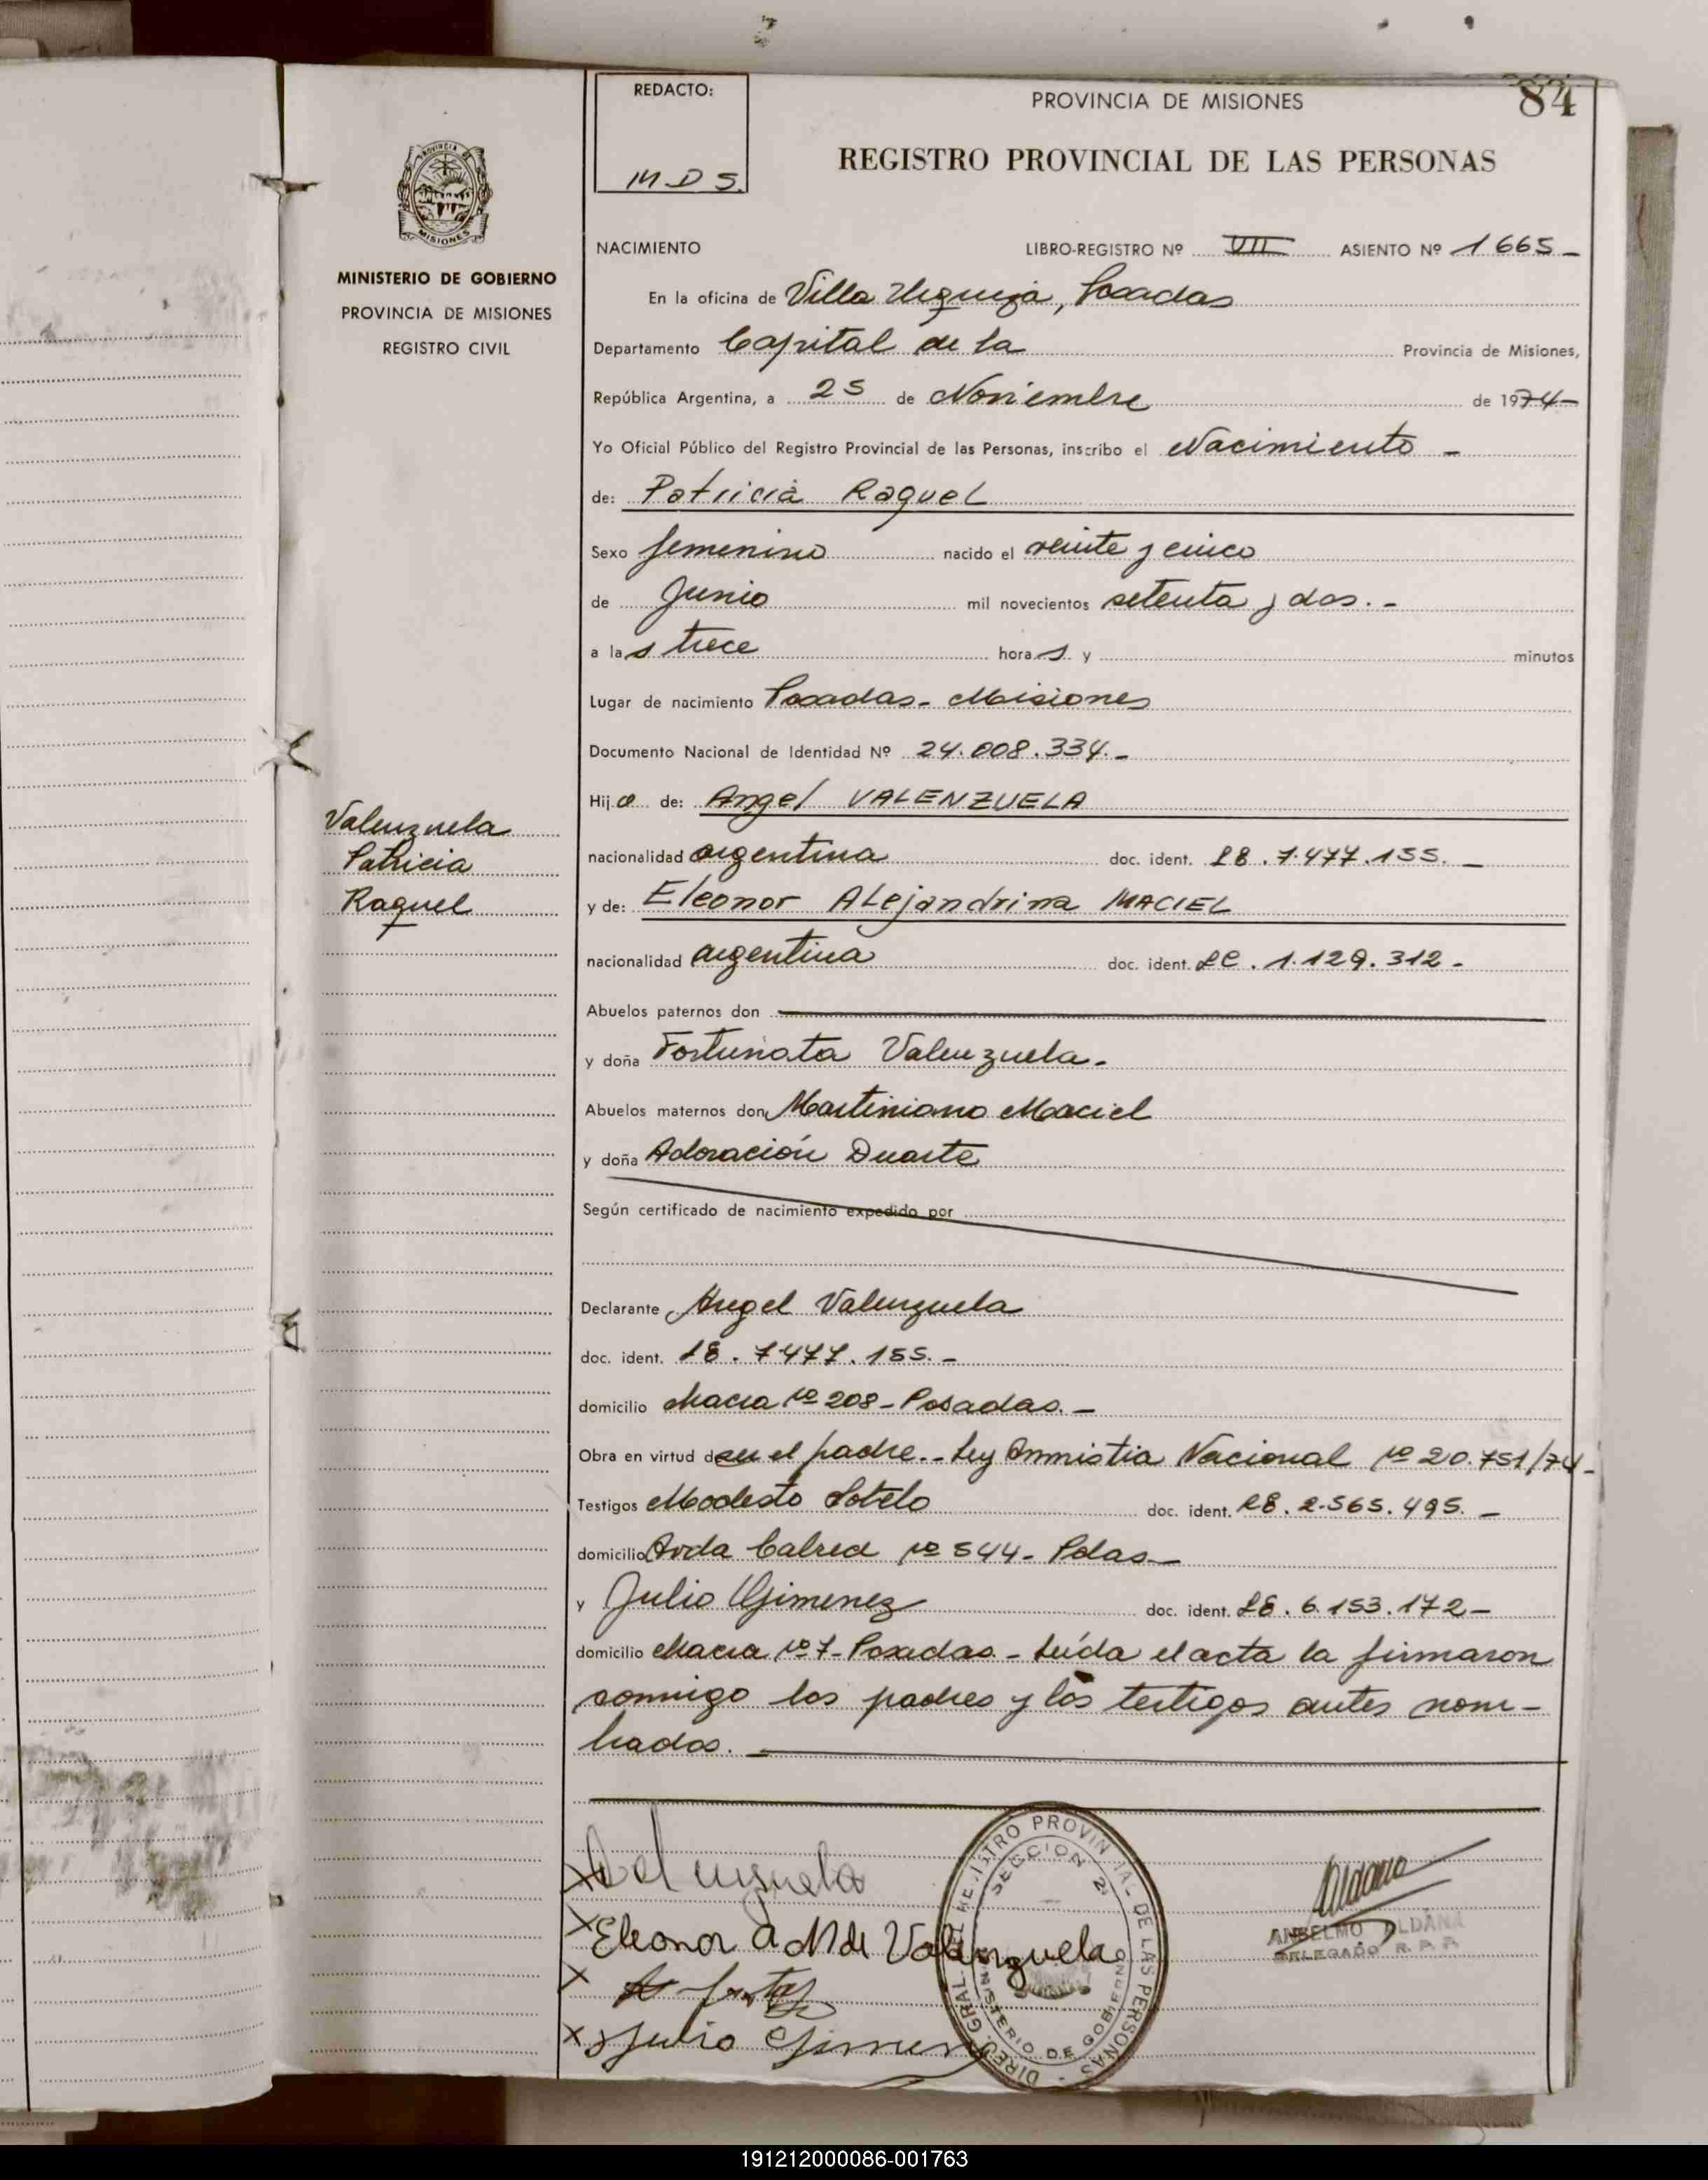 84
REDACTO:
M D S.
PROVINCIA DE MISIONES
REGISTRO PROVINCIAL DE LAS PERSONAS
PROVINCIA DE
MISIONES
MINISTERIO DE GOBIERNO
PROVINCIA DE MISIONES
REGISTRO CIVIL
Valenzuela
Patricia
Raquel
NACIMIENTO LIBRO-REGISTRO Nº VII ASIENTO Nº 1665-
En la oficina de Villa Urquiza, Posadas
Departamento Capital de la Provincia de Misiones,
República Argentina, a 25 de Noviembre de 1974-
Yo Oficial Público del Registro Provincial de las Personas, inscribo el Nacimiento -
de: Patricia Raquel
Sexo femenino nacido el veinte y cinco
de Junio mil novecientos setenta y dos.-
a las trece horas y minutos
Lugar de nacimiento Posadas- Misiones
Documento Nacional de Identidad Nº 24.008.334.-
Hija de: Angel VALENZUELA
nacionalidad argentina doc. ident. LE.7.477.155.-
y de: Eleonor Alejandrina MACIEL
nacionalidad argentina doc. ident. LC.1.129.312-
Abuelos paternos don
y doña Fortunata Valenzuela.
Abuelos maternos don Martiniano Maciel
y doña Adoración Duarte
Según certificado de nacimiento expedido por
Declarante Angel Valenzuela
doc. ident. LE.7477.155.-
domicilio Chacra Nº 208-Posadas.-
Obra en virtud de ser el padre.-Ley Amnistia Nacional Nº 20.751/74-
Testigos Modesto Sotelo doc. ident. LE.2.565.495.-
domicilio Avda Cabred Nº 544- Pdas-
y Julio Gimenez doc. ident. LE.6.153.172-
domicilio Chacra Nº 7-Posadas.-Leída el acta la firmaron
conmigo los padres y los testigos antes nom-
brados.
Valensuela
Eleonor A M de Valenzuela
Julio Gimen
DIREC. GRAL. DEL REGISTRO PROVINCIAL DE LAS PERSONAS
SECCION 2ª
MINISTERIO DE GOBIERNO
ANSELMO ALDANA
DELEGADO R. P. P.
191212000086-001763